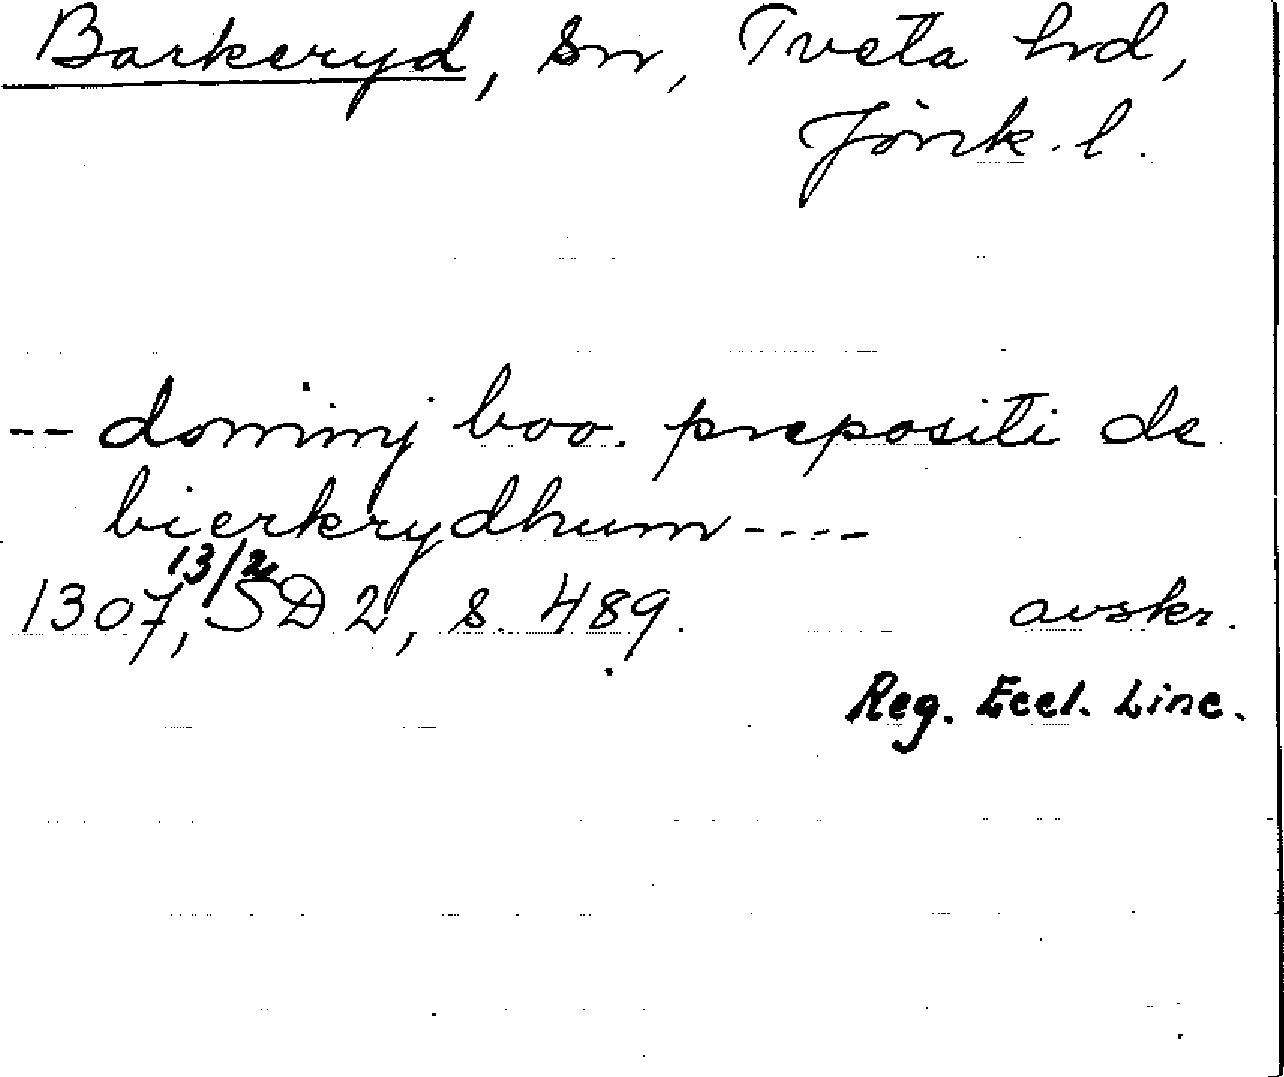 Barkeryd, sn, Tveta hd,
Jönk. l.
-- dominj boo. prepositi de
bierkrydhum ----
1307 13/2, SD 2, s. 489. avskr.
Reg. Eccl. Linc.